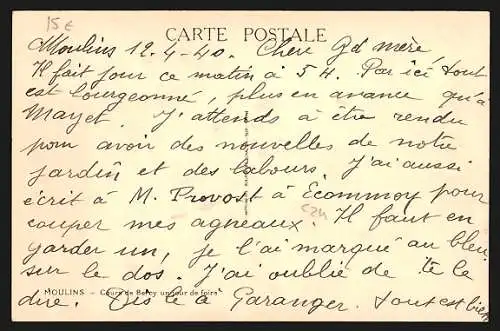 15€
CARTE POSTALE
Moulins 12-4-40. Chère Gd mère
Il fait jour ce matin à 5 H. Par ici tout
est bourgeonné, plus en avance qu'à
Mayet. J'attends à être rendu
pour avoir des nouvelles de notre
jardin et des labours. J'ai aussi
écrit à M. Provost à Ecommoy pour
couper mes agneaux. Il faut en
garder un, je l'ai marqué au bleu
sur le dos. J'ai oublié de te le
MOULINS - Cours de Bercy un jour de foire
dire. Dis le à Garanger. tout est bien